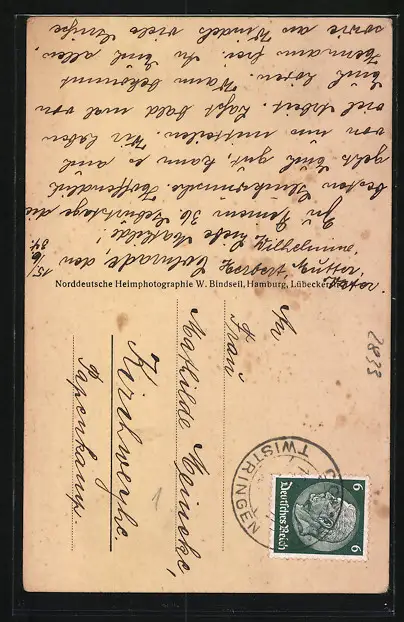 Colnrade, den 15/6 34.
Liebe Mathilde!
Zu Deinem 36 Geburtstage die
besten Glückwünsche. Hoffentlich
geht's Euch gut, kann es auch
von uns mitteilen. Wir haben
viel Arbeit. Laßt bald mal von
Euch hören. Wann bekommt
Hermann frei. Ihr Euch allen,
sowie an Windels viele Grüße
Wilhelmine,
Norddeutsche Heimphotographie W. Bindseil, Hamburg, Lübecker
An
Frau
Mathilde Meineke,
Kirchweyhe.
Papenkamp.
1
2833
TWISTRINGEN
Deutsches Reich
6
6